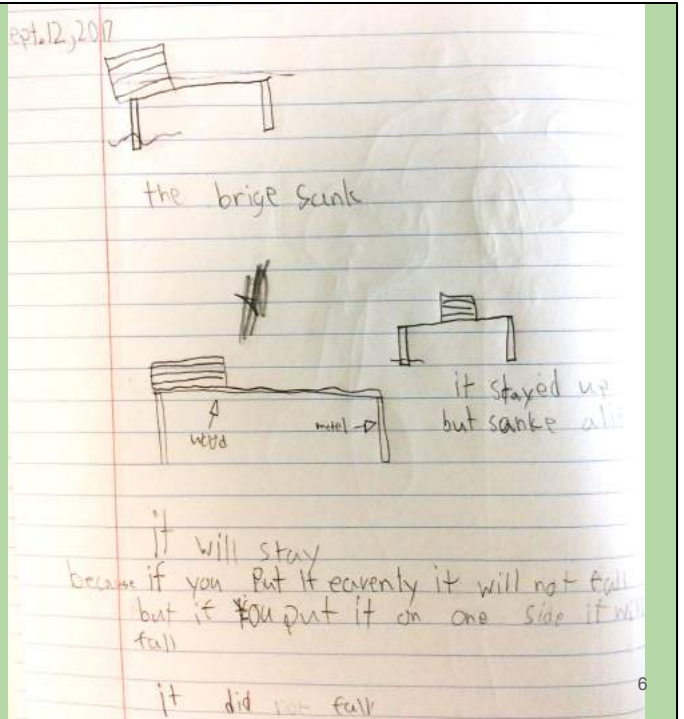 ept.12, 2017
the brige Sunk
it stayed up
but sanke
wood
metel
it will stay
because if you Put it eavenly it will not fall
but if you put it on one side it
fall
it did not fall
6